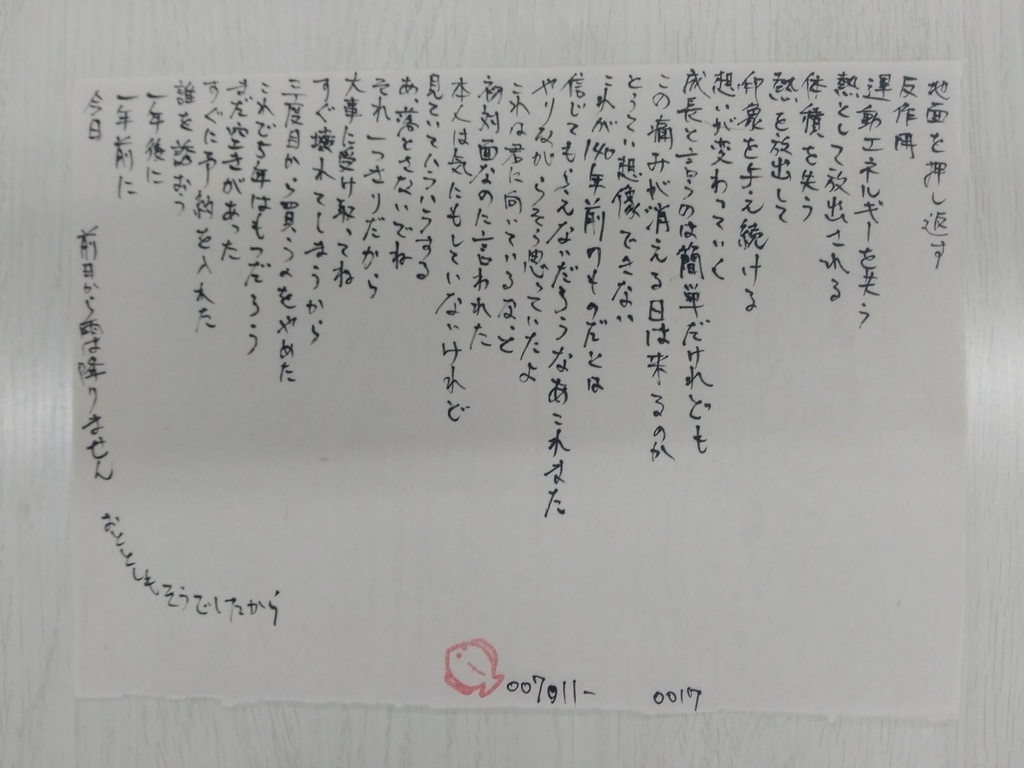 地面を押し返す
反作用
運動エネルギーを失う
熱として放出される
体積を失う
熱を放出して
印象を与え続ける
想いが変わっていく
成長と言うのは簡単だけれども
この痛みが消える日は来るのか
とうてい想像できない
これが140年前のものだとは
信じてもらえないだろうなあこれまた
やりながらそう思っていたよ
これは君に向いているなっと
初対面なのに言われた
本人は気にもしていないけれど
見ていてハラハラする
あ落とさないでね
それ一つきりだから
大事に受け取ってね
すぐ壊れてしまうから
三度目から買うのをやめた
これで5年はもつだろう
まだ空きがあった
すぐに予約を入れた
誰を誘おう
一年後に
一年前に
今日
前日から雨は降りません
おととしもそうでしたから
007011-
0017